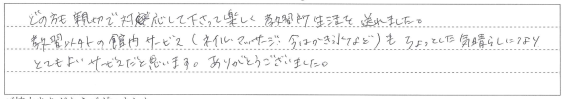 どの方も親切で対応して下さって楽しく教習所生活を送れました。
教習以外の館内サービス(ネイル・マッサージ・今はかき氷など)もちょっとした気晴らしになり
とてもよいサービスだと思います。ありがとうございました。